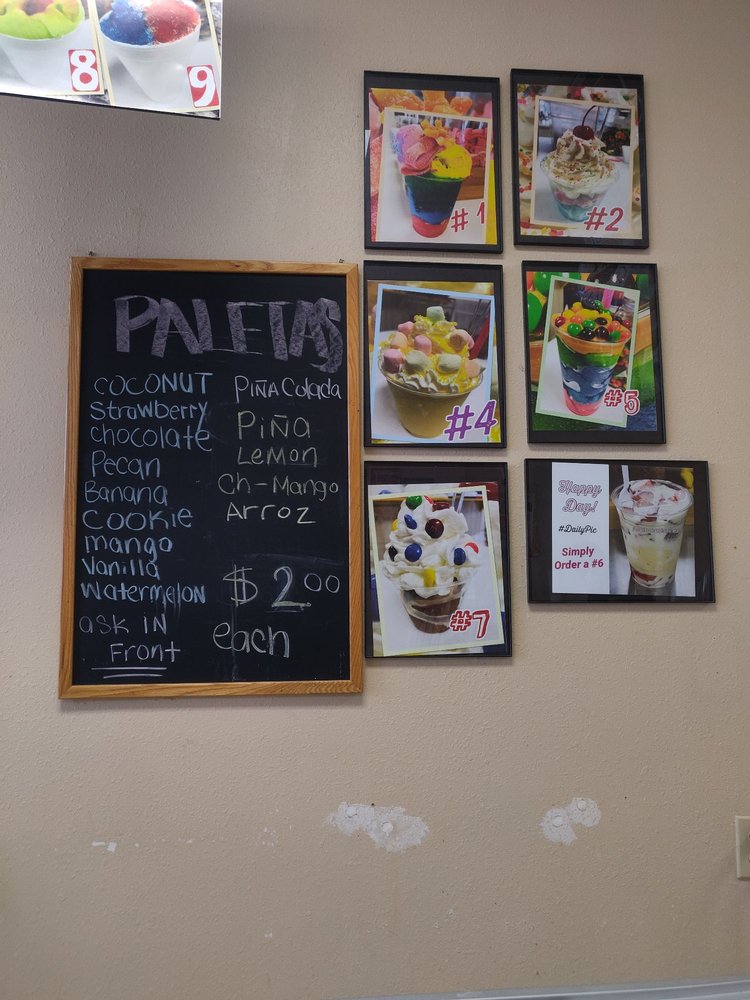 8
9
PALETAS
COCONUT
Strawberry
Chocolate
Pecan
Banana
COOKIE
mango
Vanilla
Watermelon
ask IN
Front
PIÑA Colada
PIÑA
LEMON
Ch-Mango
Arroz
$2.00
each
#1
#2
#4
#5
#7
Happy
Day!
#DailyPic
Simply
Order a #6